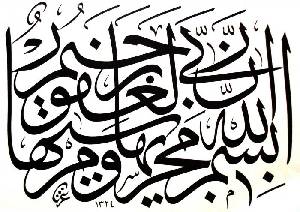 بسم الله مجريها ومرسيها
ان ربى لغفور رحيم
١٣٢٤